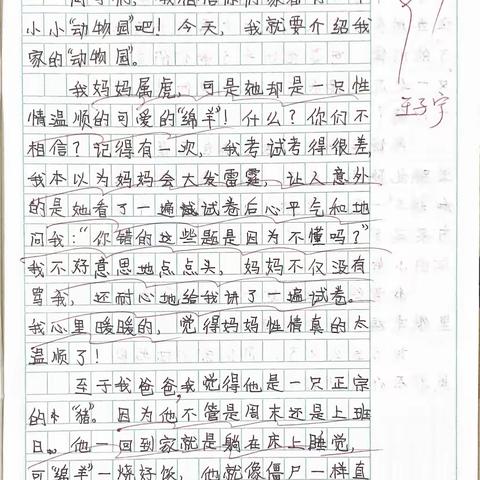 小小“动物园”吧！今天，我就要介绍我
家的“动物园”。
我妈妈属虎，可是她却是一只性
情温顺的可爱的“绵羊”！什么？你们不
相信？记得有一次，我考试考得很差，
我本以为妈妈会大发雷霆，让人意外
的是她看了一遍试卷后心平气和地
问我：“你错的这些题是因为不懂吗？”
我不好意思地点点头，妈妈不仅没有
骂我，还耐心地给我讲了一遍试卷。
我心里暖暖的，觉得妈妈性情真的太
温顺了！
至于我爸爸我觉得他是一只正宗
的“猪”。因为他不管是周末还是上班
日。他一回到家就是躺在床上睡觉，
可“绵羊”一烧好饭，他就像僵尸一样直